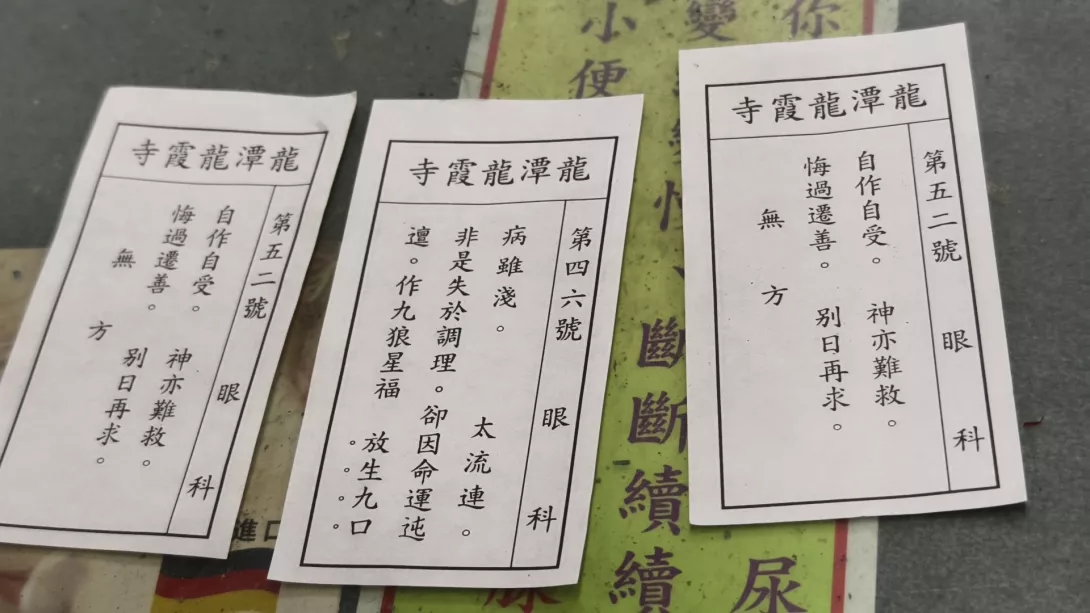 龍潭龍霞寺
第五二號 眼 科
自作自受。 神亦難救。
悔過遷善。 別日再求。
無 方
龍潭龍霞寺
第四六號 眼 科
病雖淺。 太流連。
非是失於調理。卻因命運迍
邅。作九狼星福 放生九口
。。。。
龍潭龍霞寺
第五二號 眼 科
自作自受。 神亦難救。
悔過遷善。 別日再求。
無 方
你
變
小便
、斷斷續續
尿
進口